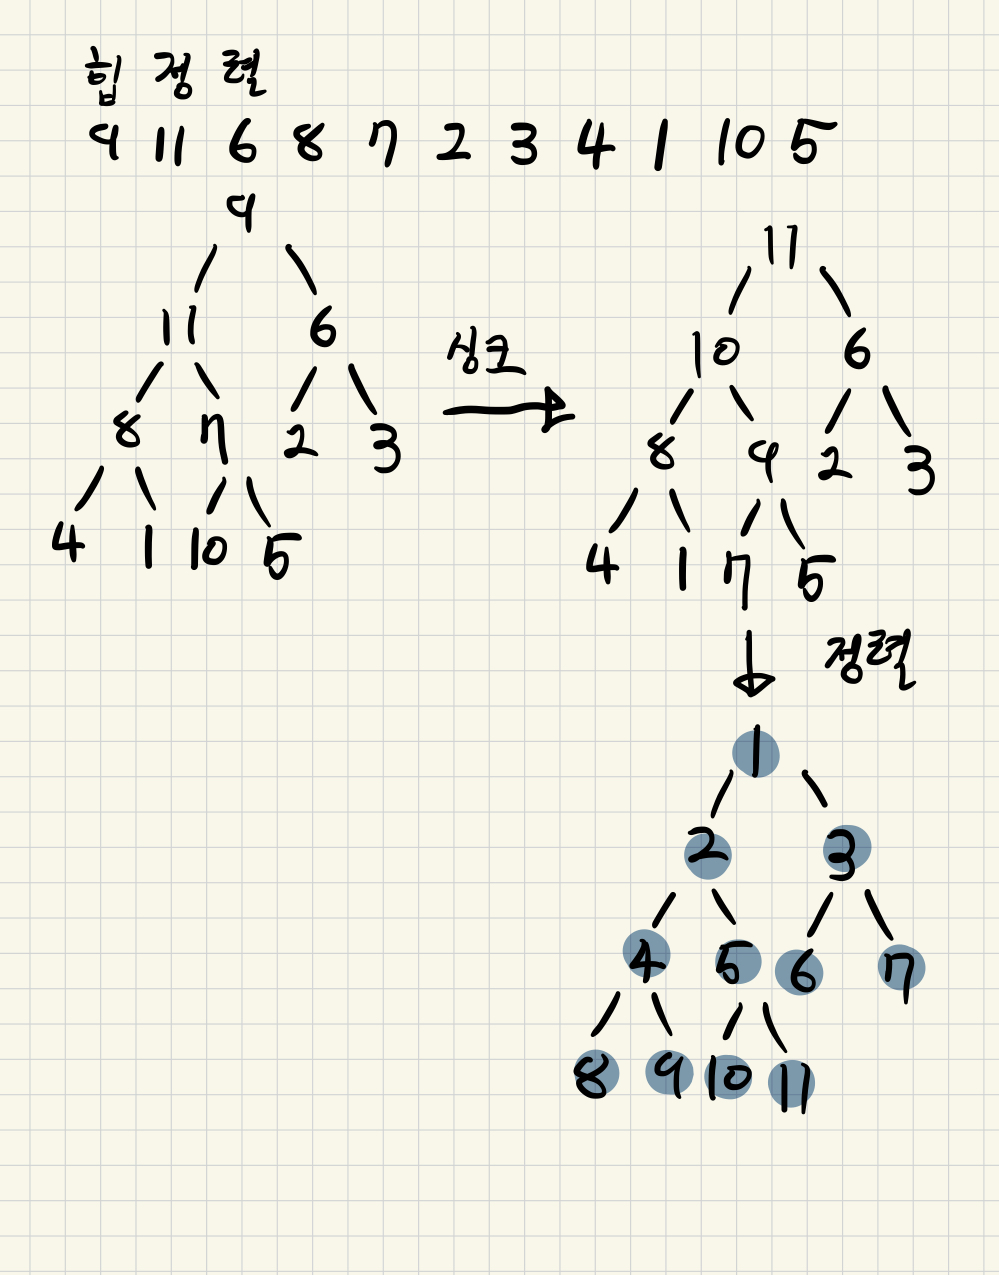 힙 정 렬
9 11 6 8 7 2 3 4 1 10 5
9
11 6
8 7 2 3
4 1 10 5
싱크
11
10 6
8 9 2 3
4 1 7 5
정렬
1
2 3
4 5 6 7
8 9 10 11